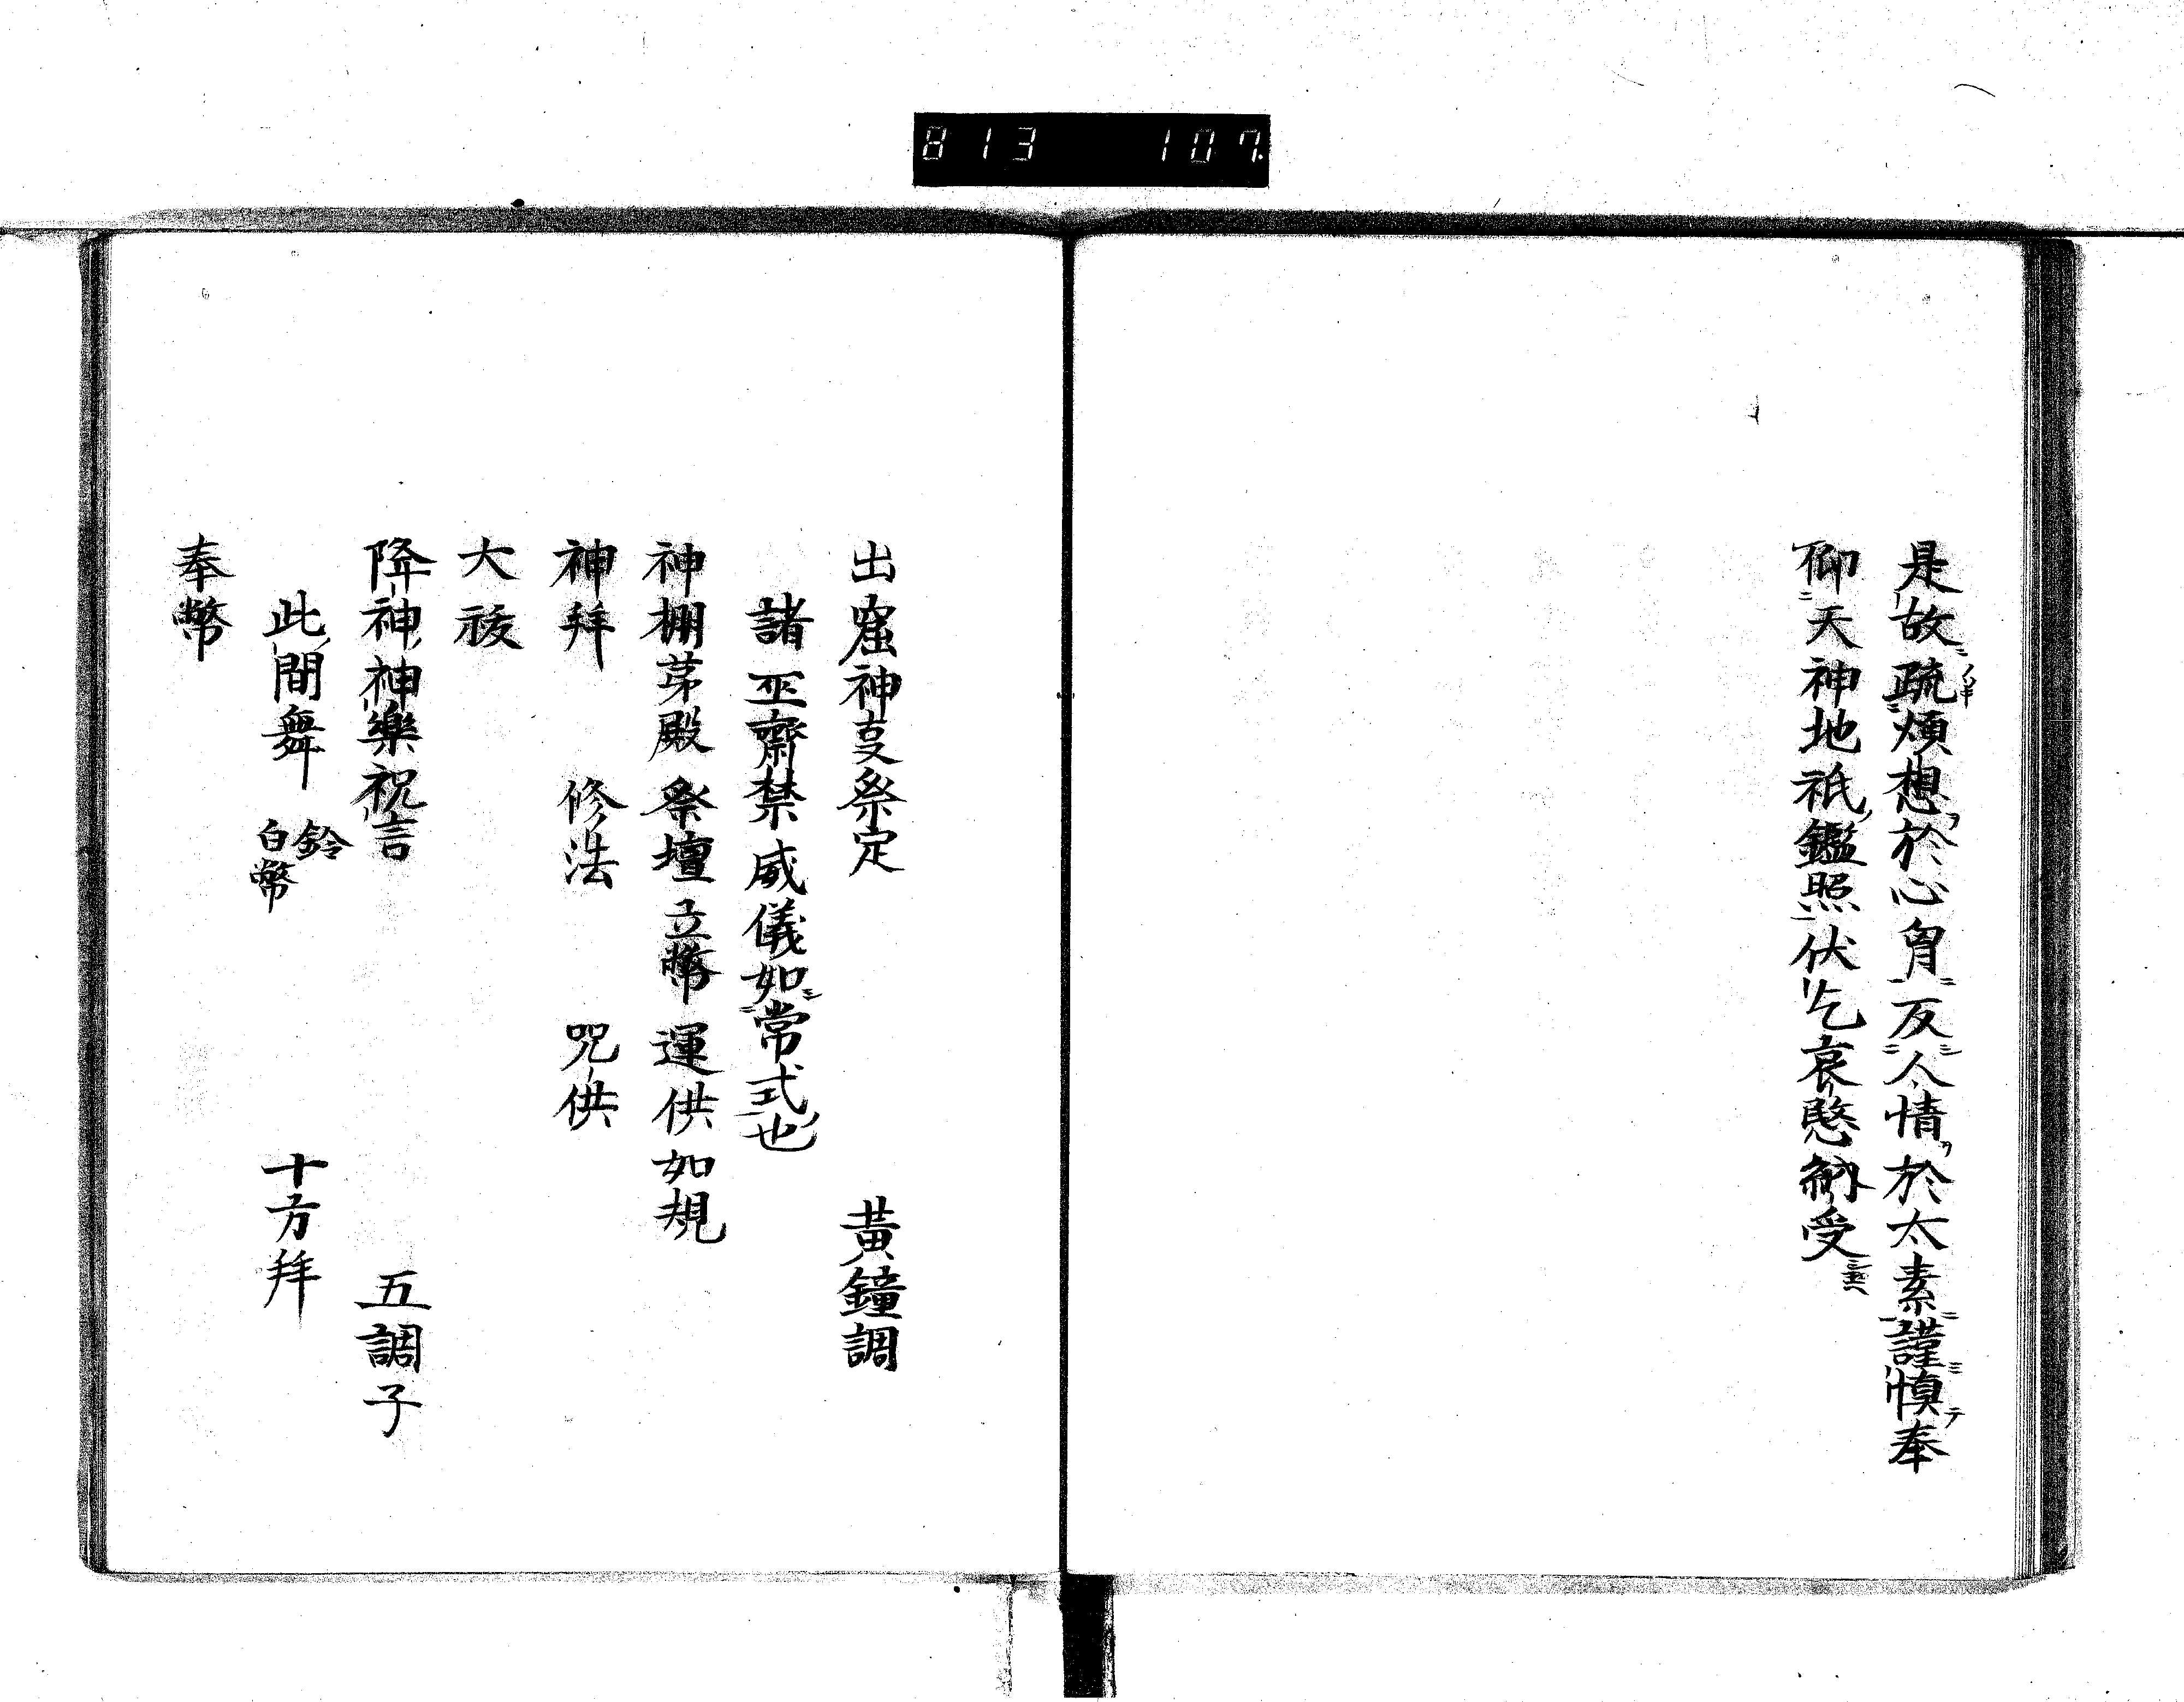 813 107
是故疏煩想於心胷反人情於太素謹慎奉
仰天神地祇鑑照伏乞哀愍納受
出窟神㕝祭定 黃鐘調
諸巫齋禁威儀如常式也
神棚茅殿祭壇立幣運供如規
神拜 修法 咒供
大祓
降神神樂祝言 五調子
此間舞 鈴 白幣 十方拜
奉幣